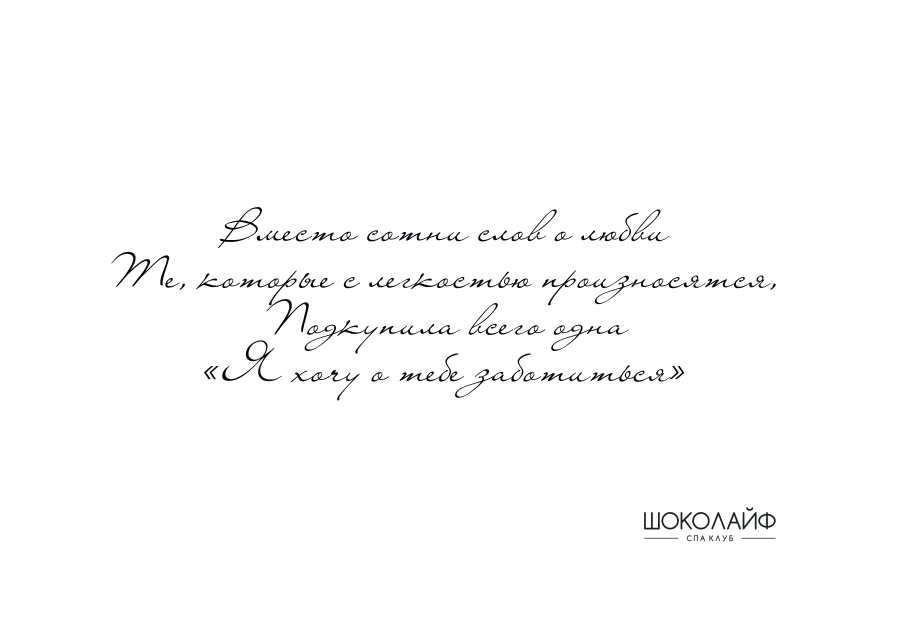 Вместо сотни слов о любви
Те, которые с легкостью произносятся,
Подкупила всего одна
«Я хочу о тебе заботиться»
ШОКОЛАЙФ
СПА КЛУБ